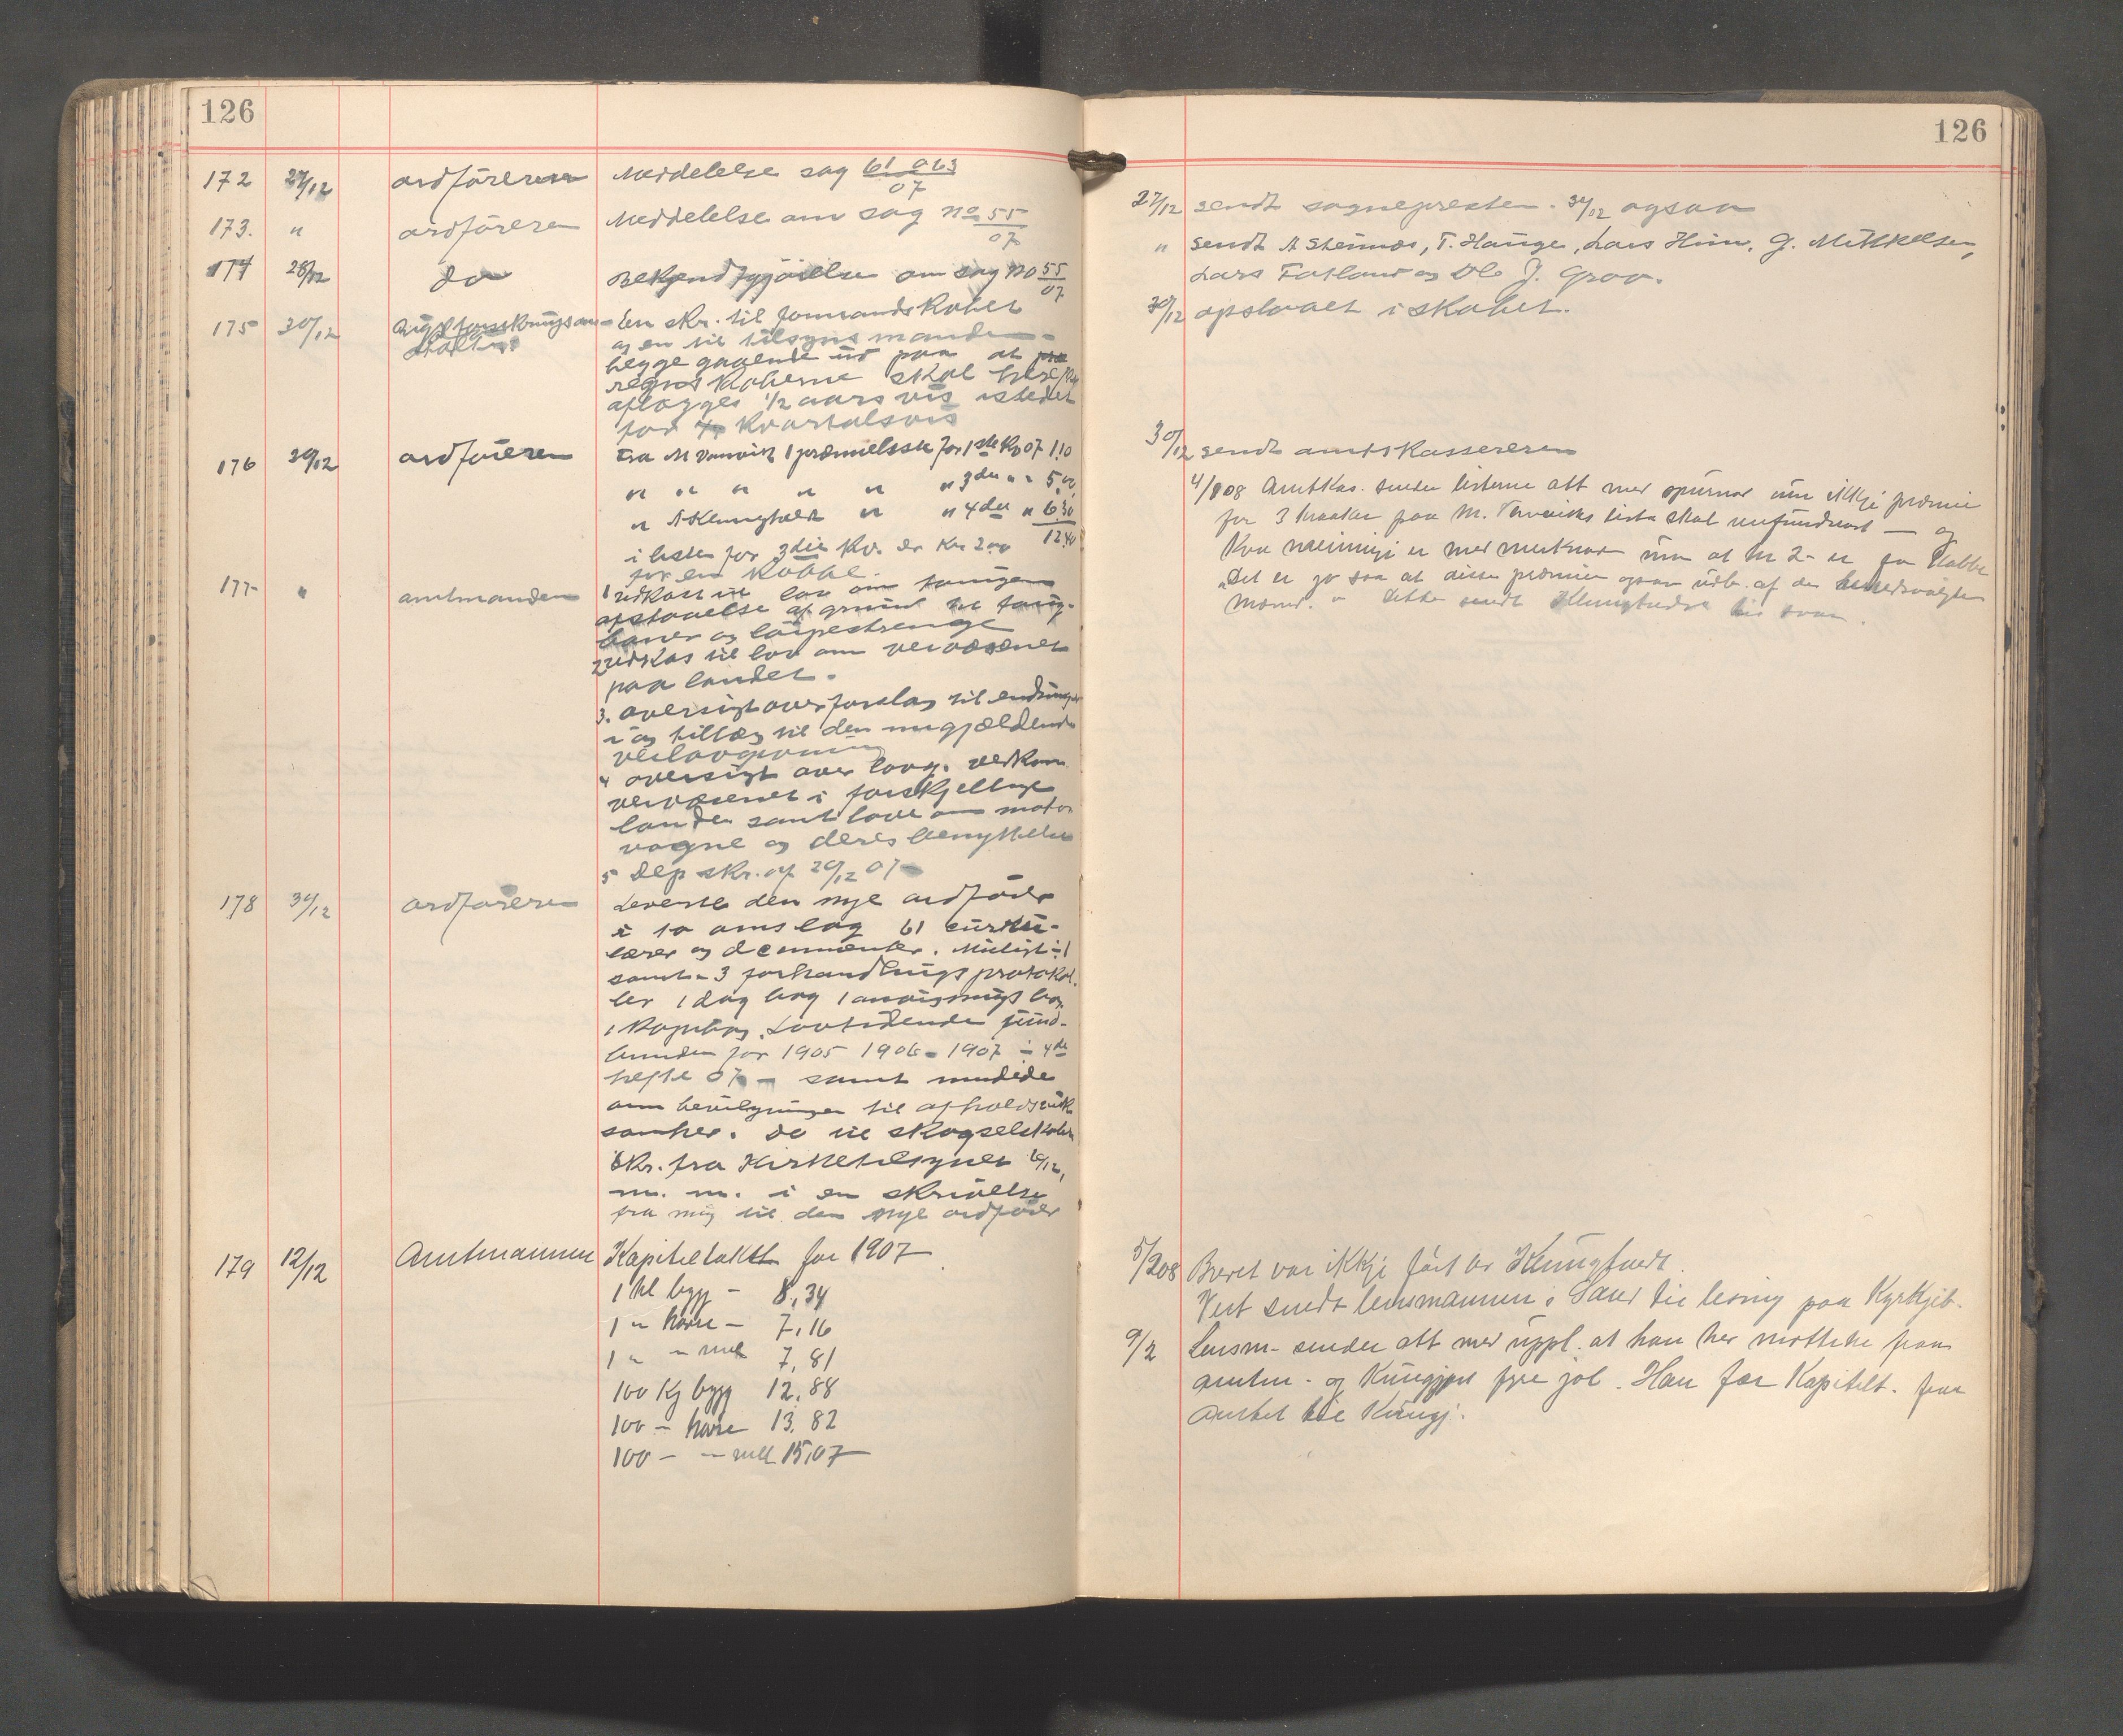 126
172 27/12 ordføreren Meddelelse sag 61 o 63/07
173. " ordføreren Meddelelse om sag no 55/07
174 28/12 do Bekjendtgjørelse om sag no 55/07
175 30/12 En skr. til formandskabet
og en til tilsynsmanden
begge gaaende ut paa at
regnskaberne skal
aflægges 1/2 aars vis istedet
for kvartalsvis
176 30/12 ordføreren Fra M 1 præmielste for 1ste Kv 07 1,10
" " " " " " 3die " " 5,00
" A Klungtvedt " " 4de " 6,30
12,40
i listen for 3die Kv. er Kr 2.00
for en Kobbe.
177 " amtmanden 1 udkast til lov om
afstaaelse af grund til taug-
baner og løipestrenge
2 udkas til lov om veivæsenet
paa landet.
3. oversigt over forslag til endringer
i og tillæg til den nugjældende
veilovgivning
4 oversigt over lovg. vedkom
veivæsenet i forskjellige
lande samt love om motor
vogne og deres benyttelse
5 Dep skr. af 20/12 07
178 30/12 ordføreren Leverte den nye ordfører
i 10 omslag 61 cirku-
lærer og documenter.
samt 3 forhandlingsprotokol.
ler 1 dag bog 1 anvisnings bog
1 Kopibog. Lovtidende
for 1905 1906 - 1907 ÷ 4de
hefte 07 - samt
om bevilgninger til afholdsvirk
somhed. do til skogselskabet
Skr. fra Kirketilsynet
m. m. i en skrivelse
fra mig til den nye ordfører
179 12/12 Amtmannen Kapiteltakst for 1907
1 hl bygg - 8,34
1 " havre - 7,16
1 " " mel 7,81
100 Kg bygg 12,88
100 - havre 13,82
100 - - mel 15,07
126
27/12 sendt sognepresten. 30/12 ogsaa
" sendt A Steinnes, T. Hauge, Lars Hiim, G. Mikkelsen,
Lars Fatland og Ole J. Grov.
30/12 opslaaet i skabet.
30/12 sendt amtskassereren
4/1 08 Amtkas. sender listerne att med spurnad um ikkje præmie
for 3 kraaker paa M. lista skal - og
Kva meiningi er med merknad um at kr 2- er for Kobbe
"Det er jo saa at disse præmier ogsaa udb. af de
mænd." Dette sendt Klungtvedt til svar.
5/2 08 Brevet var ikkje ført av Klungtvedt.
Vert sendt lensmannen i Sand til lesnig paa Kyrkjeb.
9/2 Lensm. sender att med uppl. at han her motteke fraa
amtm. og Kungjort fyre jol. Han fær Kapitelt. fraa
amtet til Kungj.